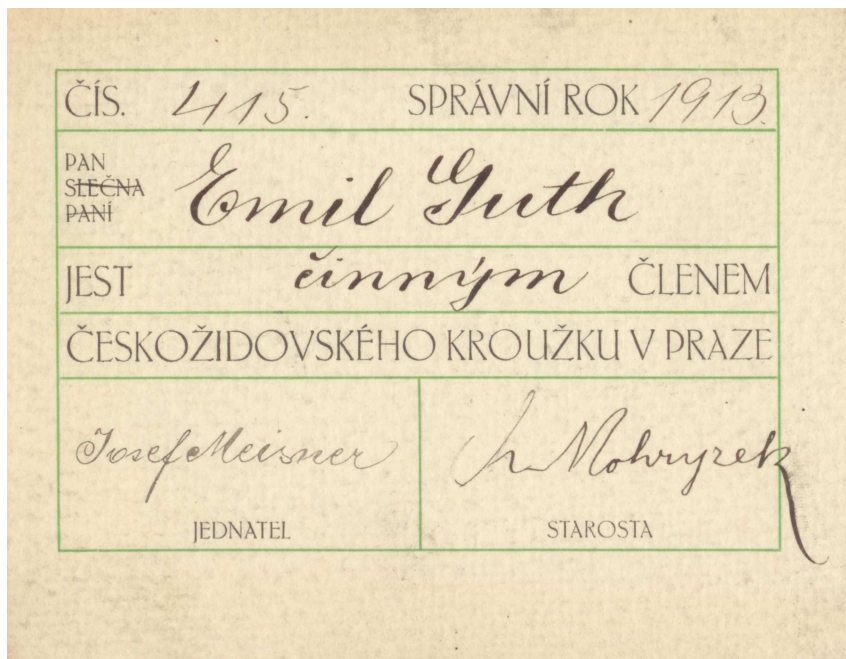 ČÍS. 415. SPRÁVNÍ ROK 1913.
PAN
SLEČNA
PANÍ
Emil Guth
JEST činným ČLENEM
ČESKOŽIDOVSKÉHO KROUŽKU V PRAZE
Josef Meisner
Mohryzek
JEDNATEL
STAROSTA